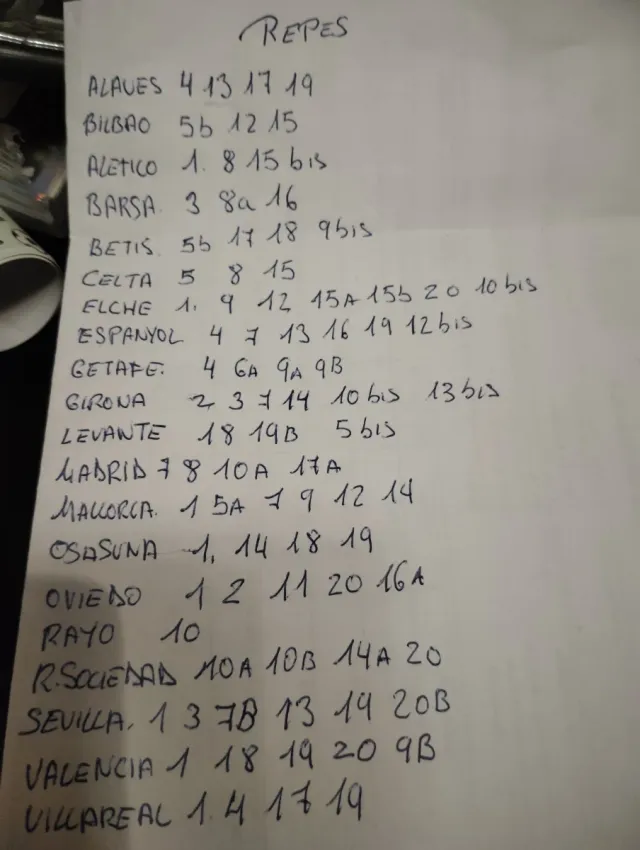 REPES
ALAVES 4 13 17 19
BILBAO 5b 12 15
ALETICO 1. 8 15 bis
BARSA. 3 8a 16
BETIS. 5b 17 18 9bis
CELTA 5 8 15
ELCHE 1. 9 12 15A 15b 20 10 bis
ESPANYOL 4 7 13 16 19 12bis
GETAFE. 4 6A 9A 9B
GIRONA 2 3 7 14 10 bis 13 bis
LEVANTE 18 19B 5 bis
MADRID 7 8 10A 17A
MALLORCA. 1 5A 7 9 12 14
OSASUNA 1, 14 18 19
OVIEDO 1 2 11 20 16A
RAYO 10
R.SOCIEDAD 10A 10B 14A 20
SEVILLA. 1 3 7B 13 19 20B
VALENCIA 1 18 19 20 9B
VILLAREAL 1. 4 17 19